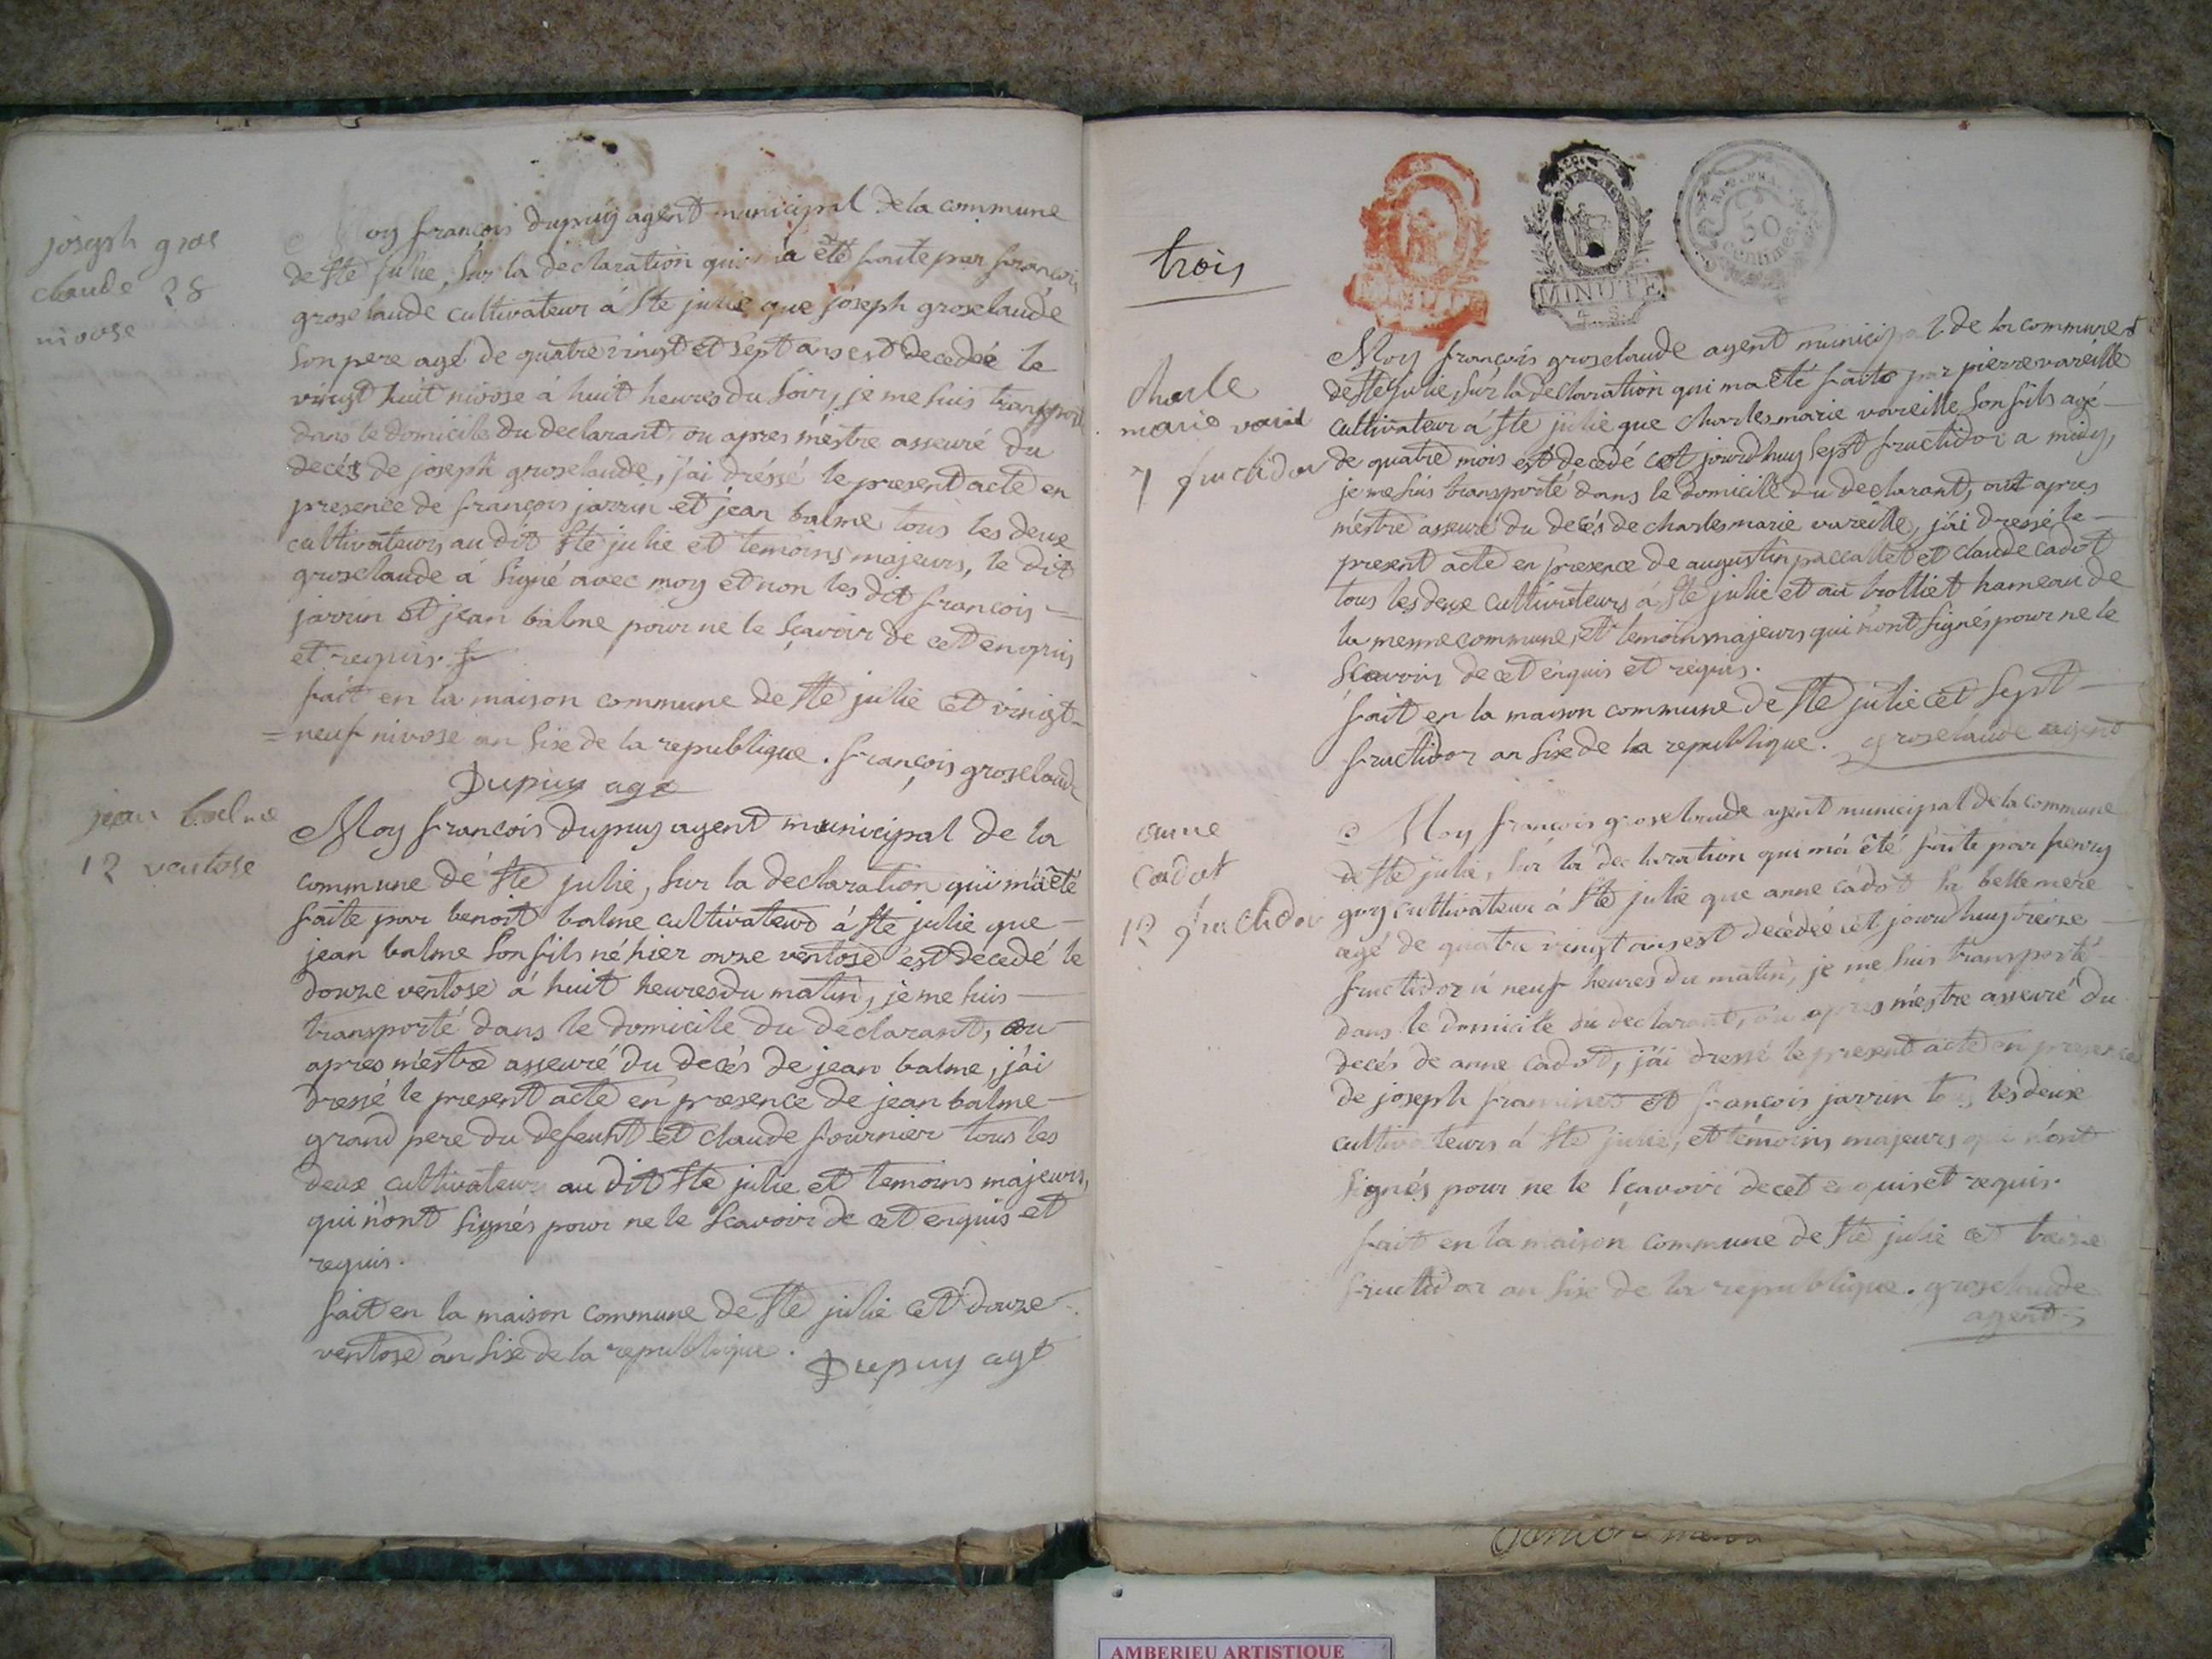 joseph gros
claude 28
nivose
oy françois dupuy agent municipal de la commune
de Ste julie, sur la declaration qui m'a été faite par françois
groselaude cultivateur á Ste julie que joseph groselaude
son pere agé de quatre vingt et sept ans est decedée le
vingt huit nivose á huit heures du soir, je me suis transporté
dans le domicile du declarant, ou apres m'estre asseuré du
decés de joseph groselaude, j'ai dréssé le present acte en
presence de françois jarrin et jean balme tous les deux
cultivateurs au dit Ste julie et temoins majeurs, le dit
groselaude á signé avec moy et non les dit francois
jarrin et jean balme pour ne le sçavoir de cet enquis
et requis.
fait en la maison commune de Ste julie cet vingt
= neuf nivose an sixe de la republique. françois groselaude
Dupuy agt
jean balme
12 ventose
Moy francois dupuy agent municipal de la
commune de Ste julie, sur la declaration qui m'a été
faite par benoit balme cultivateur á Ste julie que
jean balme son fils né hier onze ventose est decedé le
douze ventose á huit heures du matin, je me suis
transporté dans le domicile du declarant, ou
apres m'estre asseuré du decés de jean balme, j'ai
dressé le present acte en presence de jean balme
grand pere du defeunt et claude fournier tous les
deux cultivateur au dit Ste julie et temoins majeurs,
qui n'ont signés pour ne le sçavoir de cet enquis et
requis.
fait en la maison commune de Ste julie cet douze
ventose an sixe de la republique. Dupuy agt
trois
MINUTE
REP. FRA.
50
centimes
charle
marie vareil
7 fructidor
Moy françois groselaude agent municipal de la commune
de Ste julie, sur la declaration qui m'a été faite par pierre vareille
cultivateur á Ste julie que charles marie vareille son fils agé
de quatre mois est decedé cet jourdhuy sept fructidor a midy,
je me suis transporté dans le domicille du declarant, out apres
m'estre asseuré du decés de charles marie vareille, j'ai dressé le
present acte en presence de augustin paccallet et claude cadot
tous les deux cultivateurs á Ste julie et au trolliet hameau de
la mesme commune, et temoins majeurs qui n'ont signés pour ne le
sçavoir de cet enquis et requis.
fait en la maison commune de Ste julie cet sept
fructidor an sixe de la republique. groselaude agent
anne
cadot
12 fructidor
Moy françois groselaude agent municipal de la commune
de Ste julie, sur la declaration qui m'a été faite par
guy cultivateur á Ste julie que anne cadot sa belle mere
agé de quatre vingt ans est decédée cet jourdhuy treize
fructidor á neuf heures du matin, je me suis transporté
dans le domicille du declarant, ou apres m'estre asseuré du
decés de anne cadot, j'ai dressé le present acte en presence
de joseph et françois jarrin tous les deux
cultivateurs á Ste julie, et témoins majeurs qui n'ont
signés pour ne le sçavoir de cet enquis et requis.
fait en la maison commune de Ste julie cet treize
fructidor an sixe de la republique. groselaude
agent
AMBERIEU ARTISTIQUE